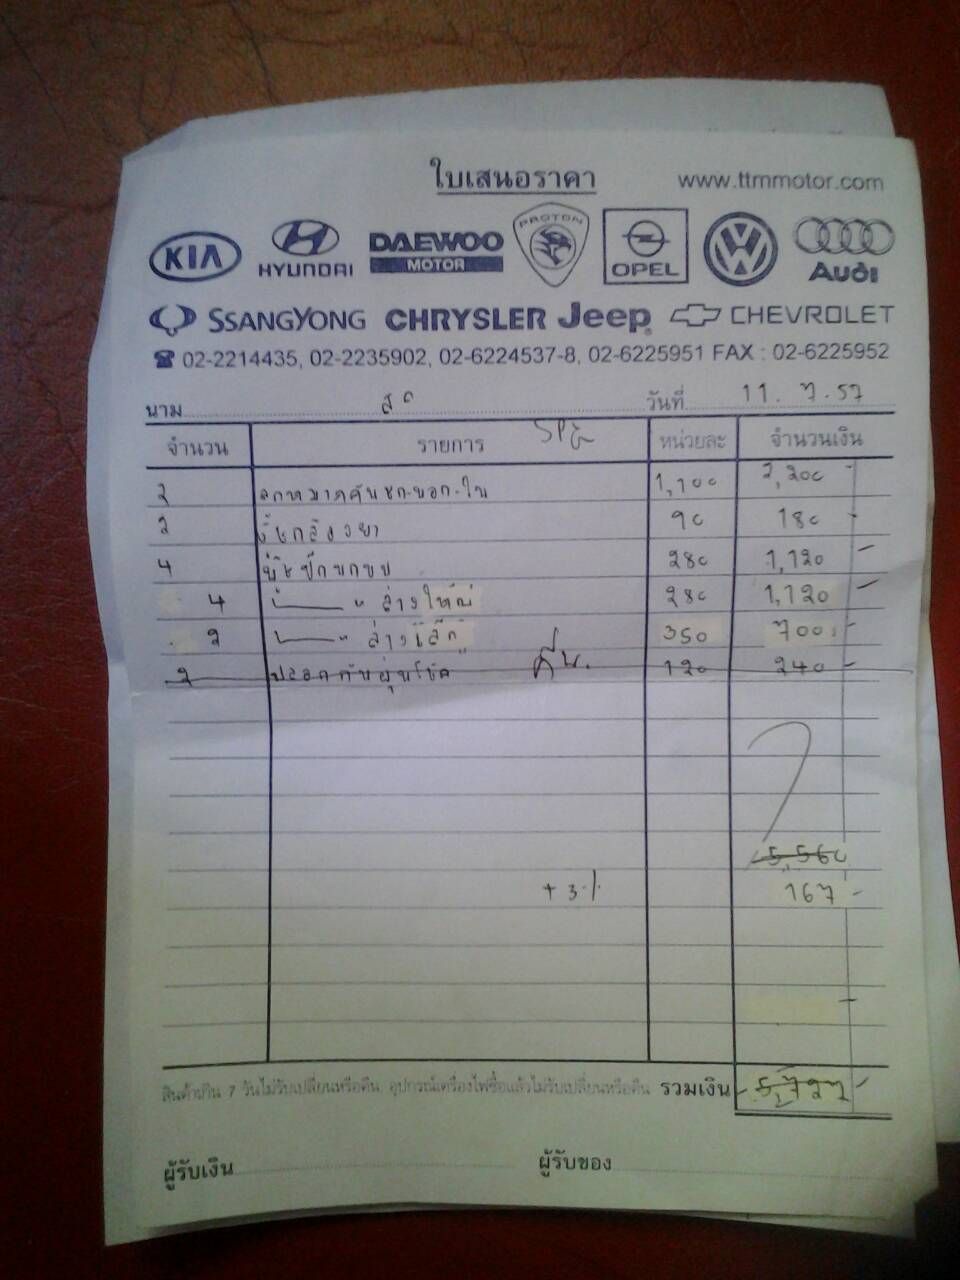 ใบเสนอราคา www.ttmmotor.com
KIA HYUNDAI DAEWOO MOTOR PROTON OPEL VW Audi
SSANGYONG CHRYSLER Jeep CHEVROLET
☎ 02-2214435, 02-2235902, 02-6224537-8, 02-6225951 FAX : 02-6225952
นาม สด วันที่ 11. 7. 57
จำนวน รายการ หน่วยละ จำนวนเงิน
2 ลูกหมากคันชัก-นอก-ใน 1,100 2,200 -
2 90 180 -
4 บู๊ชปีกนกบน 280 1,120 -
4 " ล่างใหญ่ 280 1,120 -
2 " ล่างเล็ก 350 700 -
2 ปลอกกันฝุ่นโช๊ค คืน. 120 240 -
5,560
+ 3% 167 -
-
สินค้าเกิน 7 วันไม่รับเปลี่ยนหรือคืน อุปกรณ์เครื่องไฟซื้อแล้วไม่รับเปลี่ยนหรือคืน รวมเงิน 5,727 -
ผู้รับเงิน ผู้รับของ